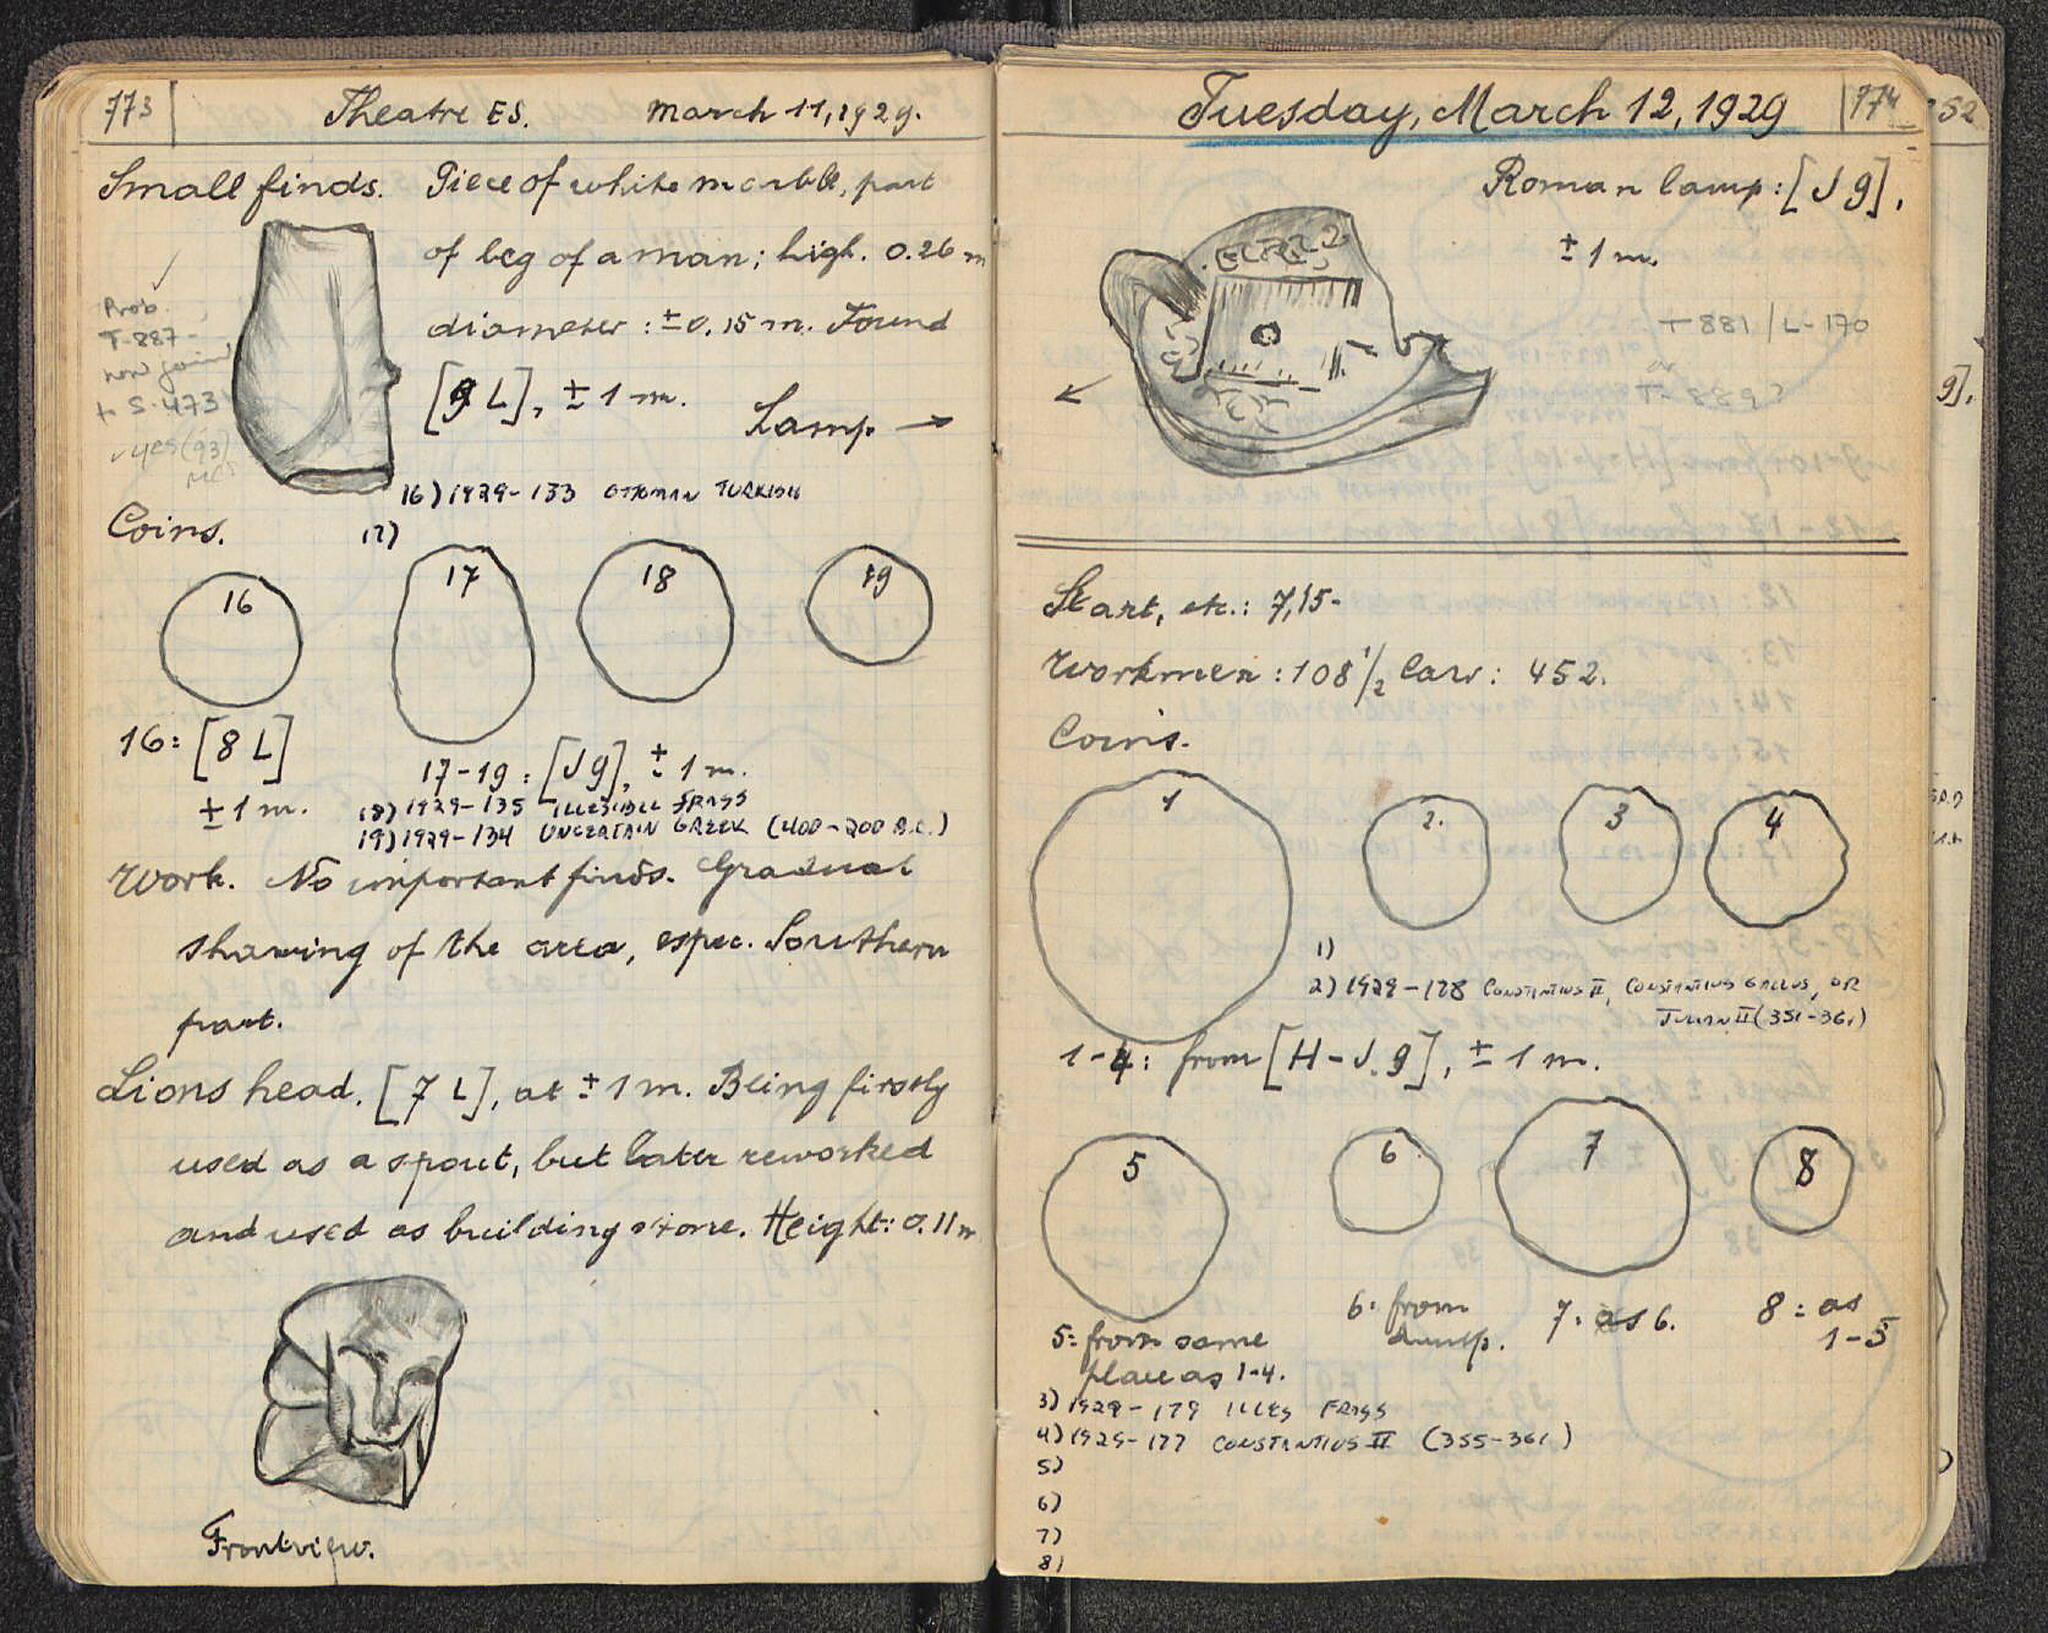 773 Theatre ES. March 11, 1929.
Small finds. Piece of white marble, part
of leg of a man; high. 0.26 m
diameter: ± 0.15 m. Found
[9 L], ± 1 m.
Lamp →
Prob.
T-887-
now joined
to S-473
yes (93)
16) 1929-133 OTTOMAN TURKISH
Coins.
17)
16
17
18
19
16: [8 L]
± 1 m.
17-19: [J 9], ± 1 m.
18) 1929-135 ILLEGIBLE FRAGS
19) 1929-134 UNCERTAIN GREEK (400-200 B.C.)
Work. No important finds. Gradual
shawing of the area, espec. Southern
part.
Lions head. [7 L], at ± 1 m. Being firstly
used as a spout, but later reworked
and used as building stone. Height: 0.11 m
Frontview.
Tuesday, March 12, 1929 774
Roman lamp: [J 9].
± 1 m.
T 881 / L-170
or
T-889?
Start, etc.: 7,15-
Workmen: 108 1/2 Cars: 452.
Coins.
1
2.
3
4
1)
2) 1929-178 CONSTANTIUS II, CONSTANTIUS GALLUS, OR
JULIAN II (351-361)
1-4: from [H-J. 9], ± 1 m.
5
6
7
8
5: from same
place as 1-4.
6: from
dump.
7: as 6.
8: as
1-5
3) 1929-179 ILLEG FRAGS
4) 1929-177 CONSTANTIUS II (355-361)
5)
6)
7)
8)
52
9].